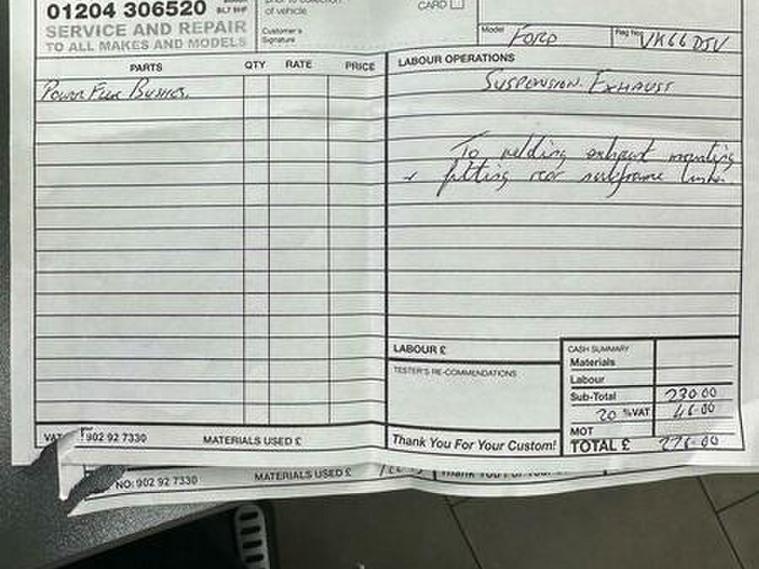 01204 306520
SERVICE AND REPAIR
TO ALL MAKES AND MODELS
prior to collection
of vehicle.
Customer's
Signature
CARD
Model FORD Reg No VK66 DJV
PARTS QTY RATE PRICE
Power Flex Bushes.
LABOUR OPERATIONS
SUSPENSION. EXHAUST
To welding exhaust mounting
+ fitting rear subframe
LABOUR £
TESTER'S RECOMMENDATIONS
CASH SUMMARY
Materials
Labour
Sub-Total 230 00
20 %VAT 46-00
MOT
TOTAL £ 276-00
VAT 902 92 7330 MATERIALS USED £ Thank You For Your Custom!
NO: 902 92 7330 MATERIALS USED £ Thank You For Your